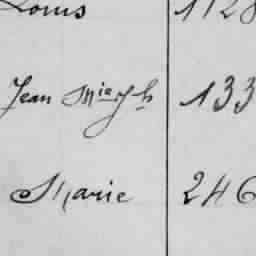 Louis 1128
Jean Mie Jh 133
Marie 246